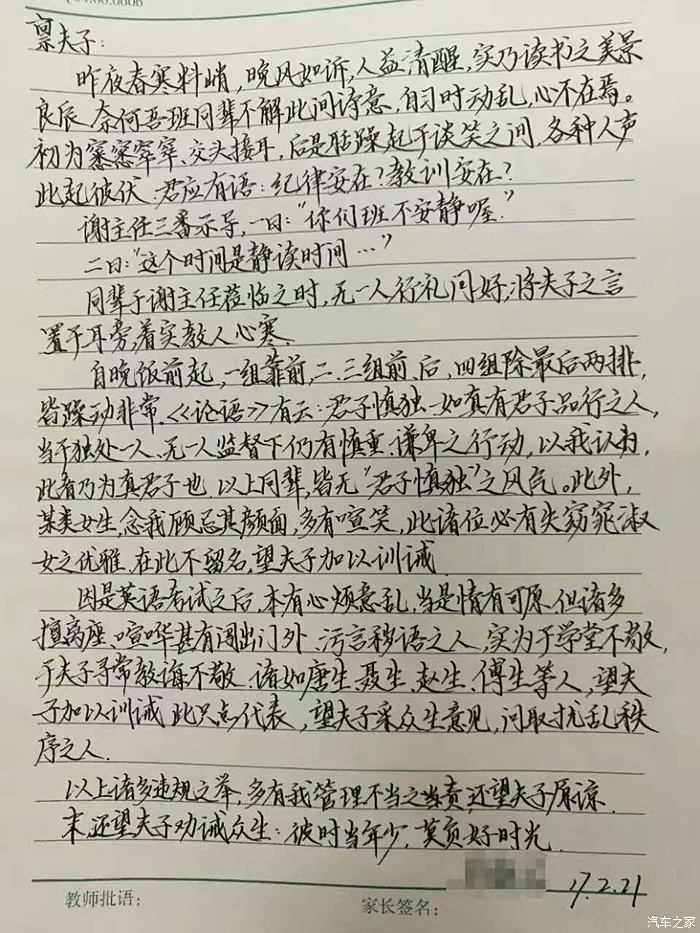 禀夫子:
昨夜春寒料峭,晚风如诉,人益清醒,实乃读书之美景
良辰.奈何吾班同辈不解此间诗意,自习时动乱,心不在焉。
初为窸窸窣窣、交头接耳,后是聒躁起于谈笑之间,各种人声
此起彼伏.君应有语:纪律安在?教训安在?
谢主任三番示导,一曰:“你们班不安静喔.”
二曰:“这个时间是静读时间…”
同辈于谢主任莅临之时,无一人行礼问好,将夫子之言
置于耳旁,着实教人心寒.
自晚饭前起,一组靠前,二、三组前、后,四组除最后两排,
皆躁动非常.《论语》有云:君子慎独.如真有君子品行之人,
当于独处一人、无一人监督下仍有慎重、谦卑之行动,以我认为,
此者乃为真君子也.以上同辈,皆无“君子慎独”之风气。此外,
某类女生,念我顾忌其颜面,多有喧笑,此诸位必有失窈窕淑
女之优雅.在此不留名,望夫子加以训诫.
因是英语考试之后,本有心烦意乱,当是情有可原.但诸多
擅离座、喧哗甚有闯出门外、污言秽语之人,实为于学堂不敬,
于夫子寻常教诲不敬.诸如唐生、聂生、赵生、傅生等人,望夫
子加以训诫.此只点代表,望夫子采众生意见,问取扰乱秩
序之人.
以上诸多违规之举,多有我管理不当之责,还望夫子原谅.
末,还望夫子劝诫众生:彼时当年少,莫负好时光.
17.2.21
教师批语:
家长签名:
汽车之家